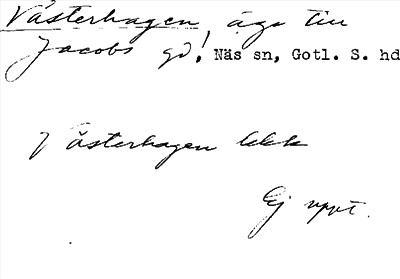 Västerhagen, äga till
Jacobs gd, Näs sn, Gotl. S. hd
Västerhagen bkk
Ej uppt.